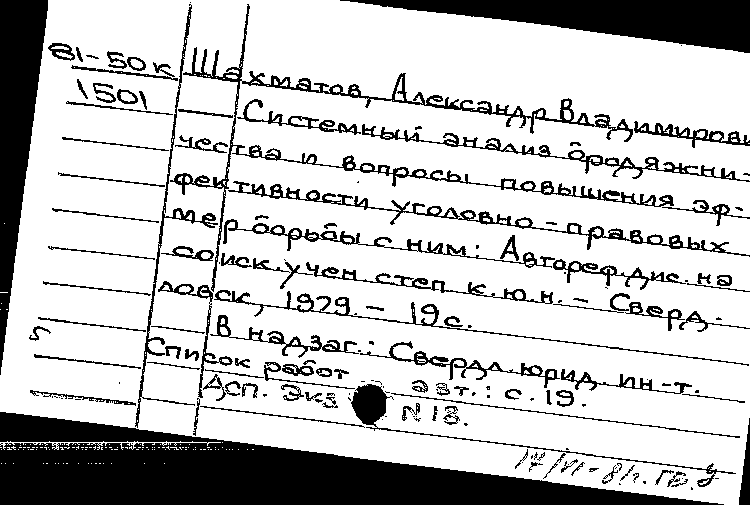 81-50к
1501
Шахматов, Александр Владимирови
Системный анализ бродяжни-
чества и вопросы повышения эф-
фективности уголовно-правовых
мер борьбы с ним: Автореф. дис. на
соиск. учен степ к.ю.н. - Сверд-
ловск, 1979. - 19 с.
В надзаг.: Свердл. юрид. ин-т.
Список работ авт.: с. 19.
Дсп. Экз N 18.
17/VI-81г. ГВ.